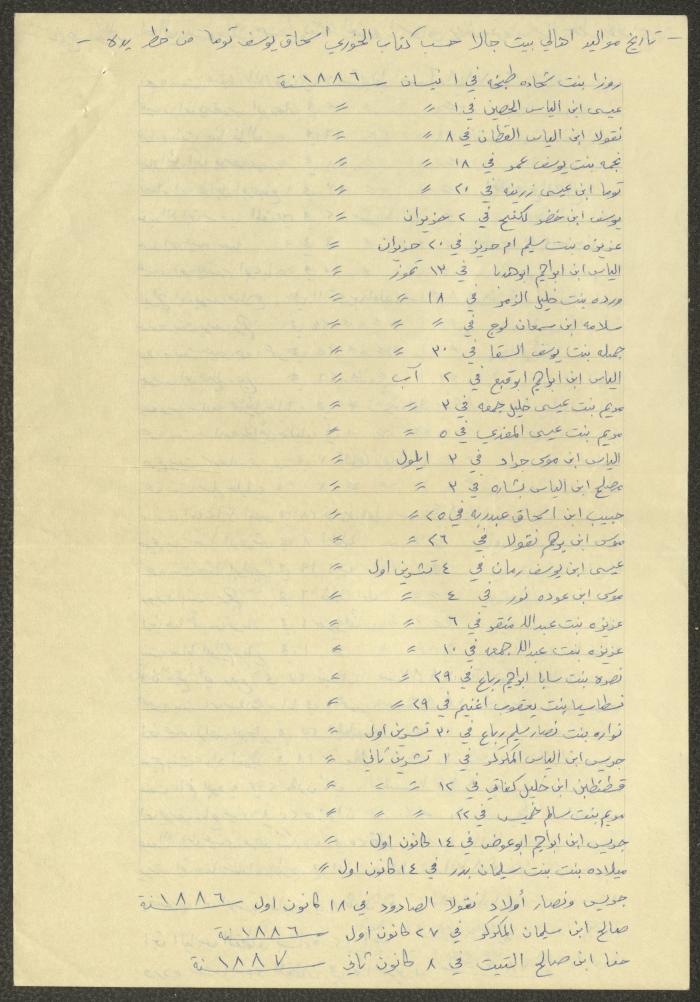 - تاريخ مواليد اهالي بيت جالا حسب كتاب الخوري اسحاق يوسف توما من خط يده -
روزا بنت شحاده طبخه في ١ نيسان سنة ١٨٨٦
عيسى ابن الياس الحصين في ١〃 〃
نقولا ابن الياس القطان في ٨ 〃 〃
نجمه بنت يوسف عمو في ١٨ 〃 〃
توما ابن عيسى زرينه في ٢٠ 〃 〃
يوسف ابن خضر في ٢ حزيران 〃
عزيزه بنت سليم ام حريز في ٢٠ حزيران 〃
الياس ابن ابراهيم ابوهدبا في ١٣ تموز 〃
ورده بنت خليل في ١٨ 〃 〃
سلامه ابن سمعان لوج في 〃 〃 〃
جميله بنت يوسف السقا في ٣٠ 〃 〃
الياس ابن ابراهيم ابوقبع في ٢ آب 〃
مريم بنت عيسى خليل جمعه في ٣ 〃 〃
مريم بنت عيسى في ٥ 〃 〃
الياس ابن موسى جراد في ٣ ايلول 〃
مصلح ابن الياس بشاره في ٣ 〃 〃
حبيب ابن اسحاق عبدربه في ٢٥ 〃 〃
موسى ابن نقولا في ٢٦ 〃 〃
عيسى ابن يوسف رمان في ٤ تشرين اول 〃
موسى ابن عوده نور في ٤ 〃 〃
عزيزه بنت عبدالله في ٦ 〃 〃
عزيزه بنت عبدالله جمعه في ١٠ 〃 〃
نصره بنت سابا ابراهيم رباع في ٢٩ 〃 〃
نسطاسيا بنت يعقوب اغنيم في ٢٩ 〃 〃
نواره بنت نصار سليم رباع في ٣٠ تشرين اول 〃
جريس ابن الياس المكركر في ١ تشرين ثاني 〃
قسطنطين ابن خليل كفاتي في ١٢ 〃 〃 〃
مريم بنت سالم خميس في ٢٢ 〃 〃 〃
جريس ابن ابراهيم ابوعوض في ١٤ كانون اول 〃
ميلاده بنت بنت سليمان بدر في ١٤ كانون اول 〃
جريس ونصار أولاد نقولا الصاررد في ١٨ كانون اول سنة ١٨٨٦
صالح ابن سلمان المكركر في ٢٧ كانون اول سنة ١٨٨٦
حنا ابن صالح التيت في ٨ كانون ثاني سنة ١٨٨٧